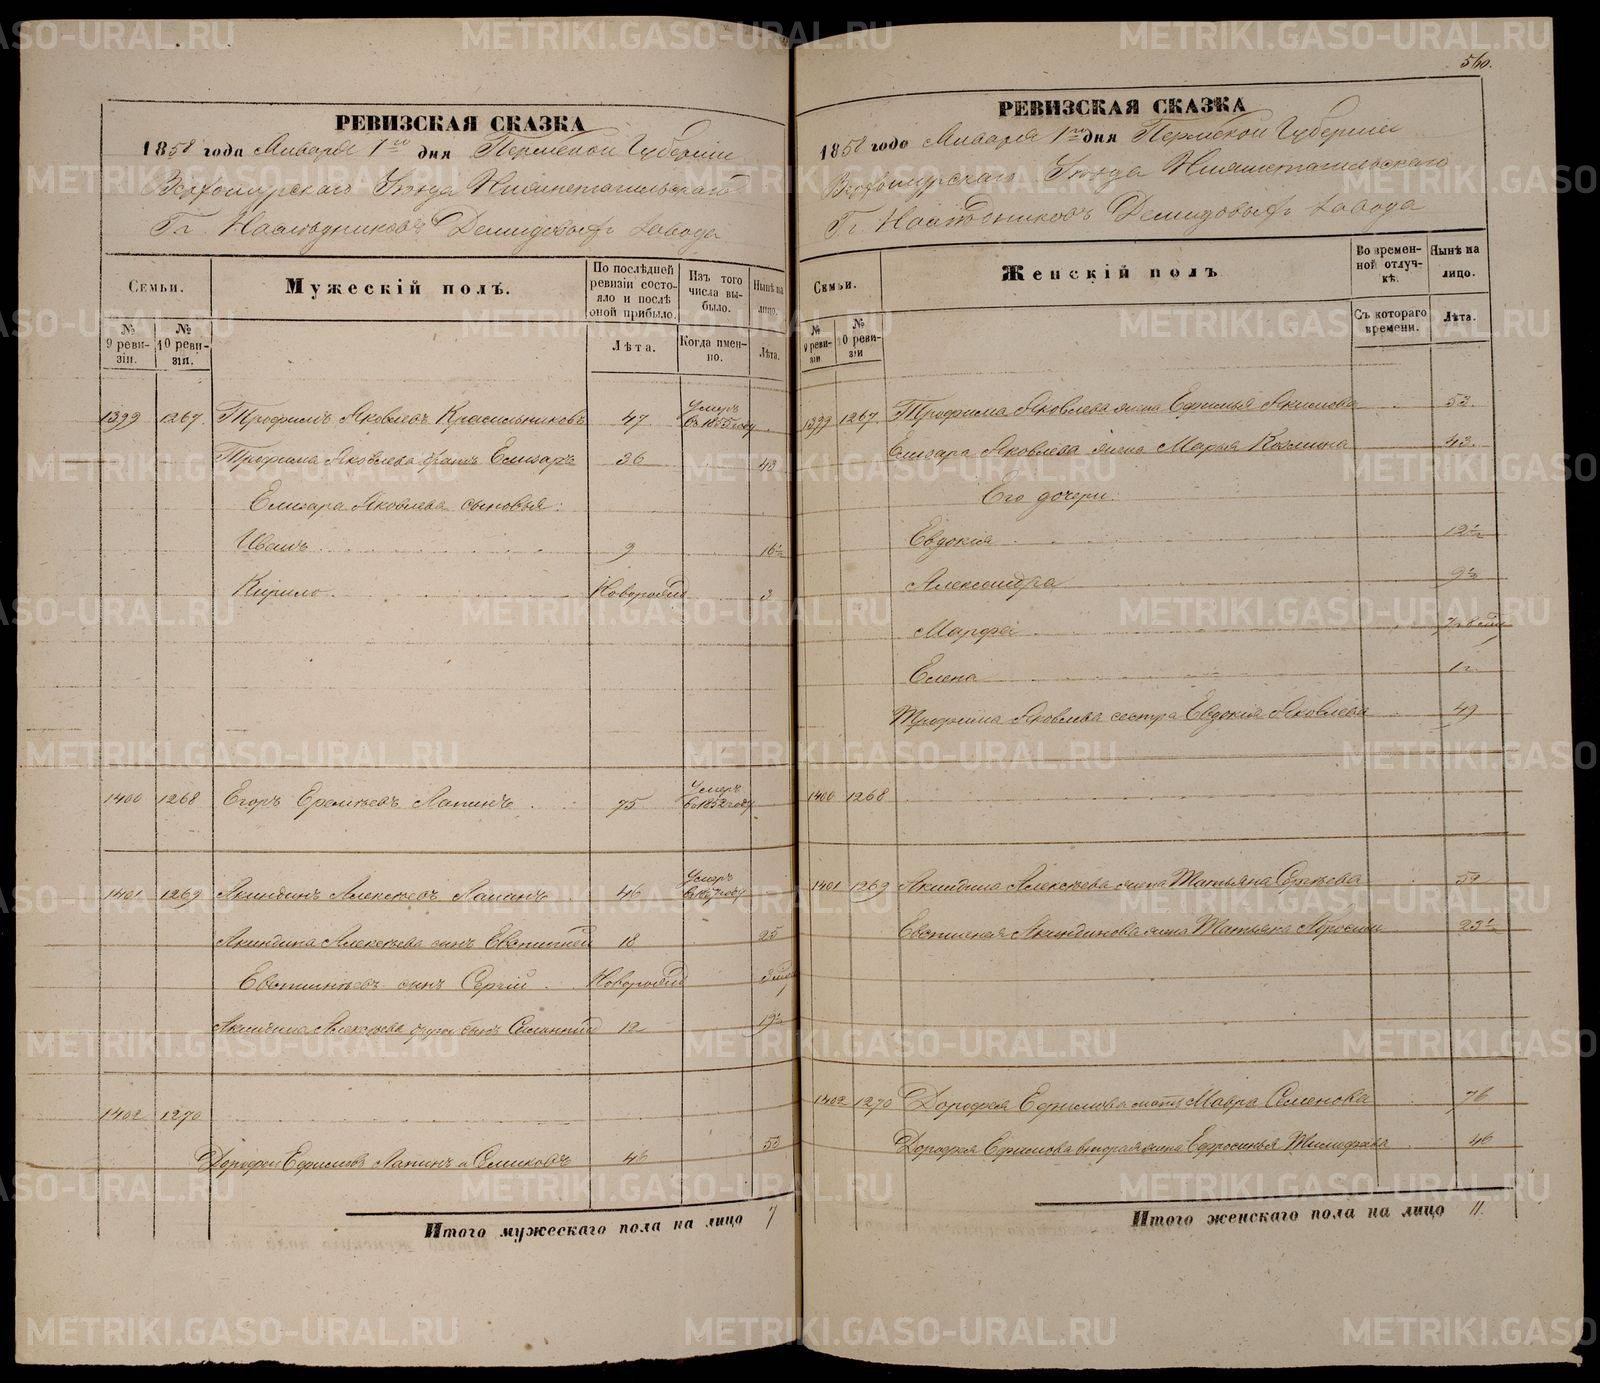 560.
РЕВИЗСКАЯ СКАЗКА
1858 года Января 1го дня Пермской Губернии
Верхотурскаго Уѣзда Нижнетагильскаго
Гг. Наслѣдниковъ Демидовыхъ завода
Семьи.
Мужескій полъ.
По послѣдней ревизіи состояло и послѣ оной прибыло.
Изъ того числа выбыло.
Нынѣ на лицо.
№ 9 ревизіи.
№ 10 ревизіи.
Лѣта.
Когда именно.
Лѣта.
1399 1267. Трофимъ Яковлевъ Красильниковъ 47 Умеръ въ 1855 году
Трофима Яковлева братъ Елизаръ 36 43
Елизара Яковлева сыновья:
Иванъ 9 16½
Кирило Новорожд 3
1400 1268 Егоръ Еремѣевъ Лапинъ 75 Умеръ въ 1852 году
1401 1269 Акиндинъ Алексѣевъ Лапинъ 46 Умеръ въ 1857 году
Акиндина Алексѣева сынъ Евстигней 18 25
Евстигнѣевъ сынъ Сергій Новорожд
Акиндина Алексѣева другой сынъ 12 19½
1402 1270
Дорофей Ефимовъ Лапинъ и 46 53
Итого мужескаго пола на лицо 7
РЕВИЗСКАЯ СКАЗКА
1858 года Января 1го дня Пермской Губерніи
Верхотурскаго Уѣзда Нижнетагильскаго
Гг. Наслѣдниковъ Демидовыхъ завода
Семьи.
Женскій полъ
Во временной отлучкѣ.
Нынѣ на лицо.
№ 9 ревизіи
№ 10 ревизіи
Съ котораго времени.
Лѣта.
1399 1267. Трофима Яковлева жена Ефимья Акимова 53.
Елизара Яковлева жена Марья Козмина 43.
Его дочери:
Евдокія 12½
Александра 9½
Марфа
Елена
Трофима Яковлева сестра Евдокія Яковлева 49
1400 1268
1401 1269 Акиндина Алексѣева жена Татьяна Сергѣева
Евстигнея Акиндинова жена Татьяна 23½
1402 1270 Дорофея Ефимова мать Мавра Семенова 76
Дорофея Ефимова вторая жена Ефросинья Тимофѣева 46
Итого женскаго пола на лицо 11.
METRIKI.GASO-URAL.RU